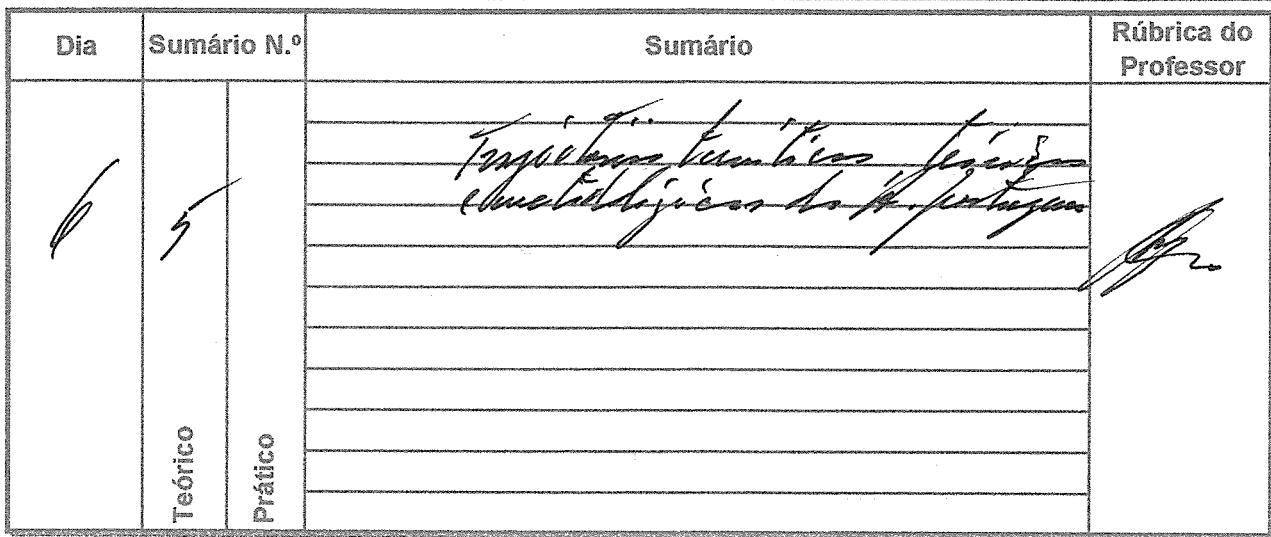 Dia
Sumário N.º
Sumário
Rúbrica do
Professor
6
5
Trajectórias temáticas, teóricas
e metodológicas da A. portuguesa
Teórico
Prático